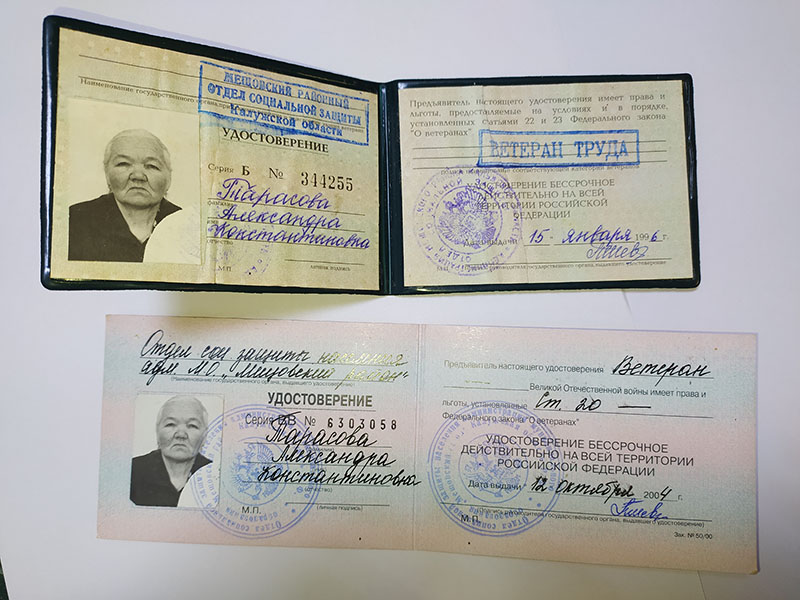 МЕЩОВСКИЙ РАЙОННЫЙ
ОТДЕЛ СОЦИАЛЬНОЙ ЗАЩИТЫ
Калужской области
Наименование государственного органа,
УДОСТОВЕРЕНИЕ
Серия Б № 344255
Тарасова
Александра
Константиновна
М.П. личная подпись
Предъявитель настоящего удостоверения имеет права и
льготы, предоставляемые на условиях и в порядке,
установленных статьями 22 и 23 Федерального закона
"О ветеранах"
ВЕТЕРАН ТРУДА
УДОСТОВЕРЕНИЕ БЕССРОЧНОЕ
ДЕЙСТВИТЕЛЬНО НА ВСЕЙ
ТЕРРИТОРИИ РОССИЙСКОЙ
ФЕДЕРАЦИИ
Дата выдачи 15 - января 1996 г.
руководителя государственного органа, выдавшего удостоверение
Отдел соц защиты населения
адм. М.О. „Мещовский район"
(Наименование государственного органа, выдавшего удостоверение)
УДОСТОВЕРЕНИЕ
Серия ВВ № 6303058
Тарасова
Александра
Константиновна
(отчество)
М.П. (личная подпись)
Предъявитель настоящего удостоверения Ветеран
Великой Отечественной войны имеет права и
льготы, установленные Ст. 20 —
Федерального закона "О ветеранах"
УДОСТОВЕРЕНИЕ БЕССРОЧНОЕ
ДЕЙСТВИТЕЛЬНО НА ВСЕЙ ТЕРРИТОРИИ
РОССИЙСКОЙ ФЕДЕРАЦИИ
Дата выдачи 12 октября 2004 г.
М.П. руководителя государственного органа, выдавшего удостоверение)
Зак. № 50/00